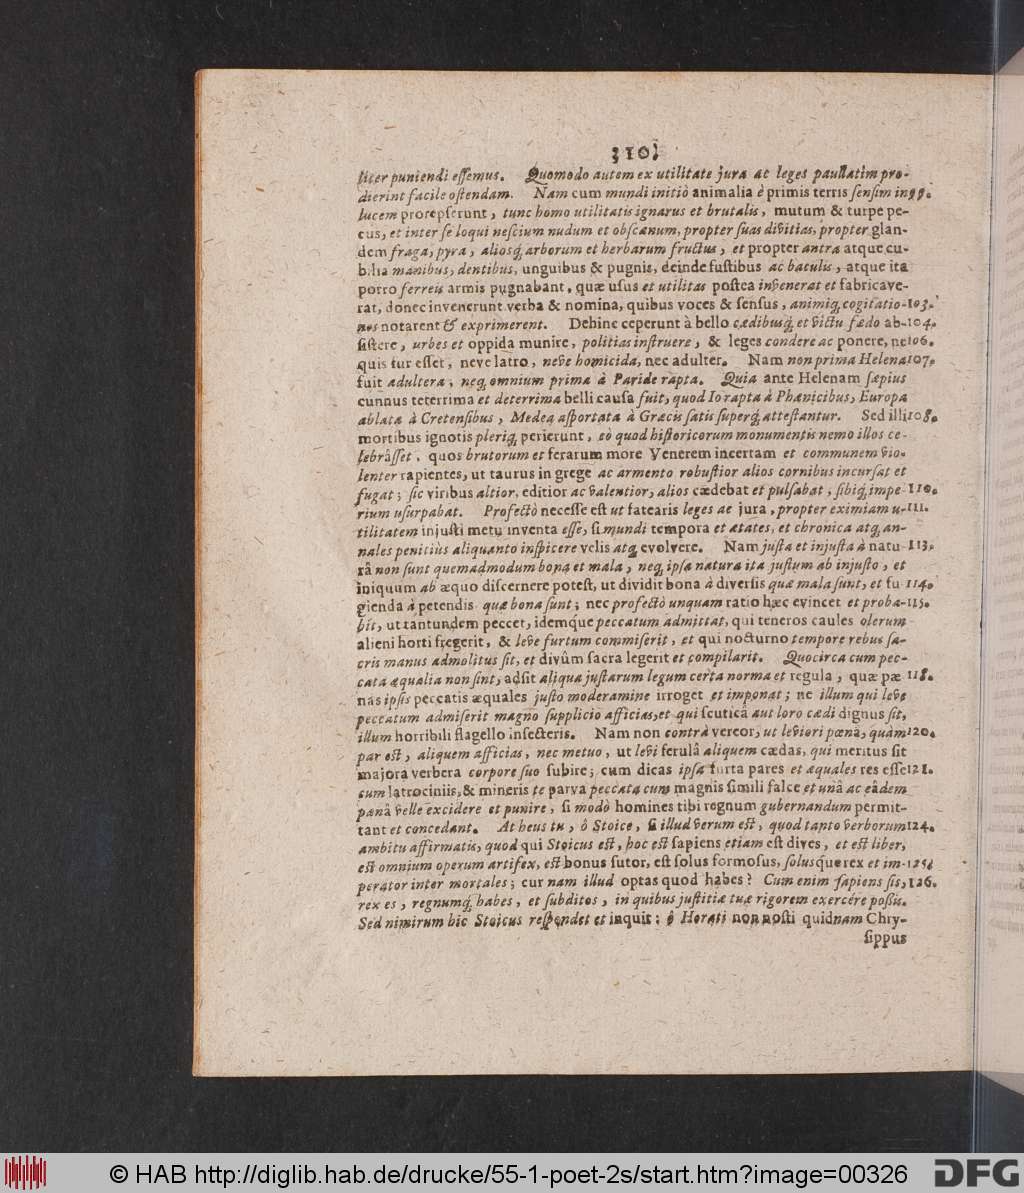 310.
liter puniendi essemus. Quomodo autem ex utilitate jura ac leges paullatim pro-
dierint facile ostendam. Nam cum mundi initiò animalia è primis terris sensim in 99.
lucem prorepserunt, tunc homo utilitatis ignarus et brutalis, mutum & turpe pe-
cus, et inter se loqui nescium nudum et obscænum, propter suas divitias, propter glan-
dem fraga, pyra, aliosq́ arborum et herbarum fructus, et propter antra atque cu-
bilia manibus, dentibus, unguibus & pugnis, deinde fustibus ac baculis, atque ita
porro ferreis armis pugnabant, quæ usus et utilitas postea invenerat et fabricave-
rat, donec invenerunt verba & nomina, quibus voces & sensus, animiq́ cogitatio- 103.
nes notarent & exprimerent. Dehinc ceperunt à bello cædibusq́ et victu fœdo ab- 104.
sistere, urbes et oppida munire, politias instruere, & leges condere ac ponere, ne 106.
quis fur esset, neve latro, neve homicida, nec adulter. Nam non prima Helena 107.
fuit adultera, neq́ omnium prima à Paride rapta. Quia ante Helenam sæpius
cunnus teterrima et deterrima belli causa fuit, quod Io rapta à Phœnicibus, Europa
ablata à Cretensibus, Medea asportata à Græcis satis superq́ attestantur. Sed illi 108.
mortibus ignotis pleriq́ perierunt, eò quod historicorum monumentis nemo illos ce-
lebrâsset, quos brutorum et ferarum more Venerem incertam et communem vio-
lenter rapientes, ut taurus in grege ac armento robustior alios cornibus incursat et
fugat; sic viribus altior, editior ac valentior, alios cædebat et pulsabat, sibiq́ impe- 110.
rium usurpabat. Profectò necesse est ut fatearis leges ac jura, propter eximiam u- 111.
tilitatem injusti metu inventa esse, si mundi tempora et ætates, et chronica atq́ an-
nales penitiùs aliquanto inspicere velis atq́ evolvere. Nam justa et injusta à natu- 113.
râ non sunt quemadmodum bona et mala, neq́ ipsa natura ita justum ab injusto, et
iniquum ab æquo discernere potest, ut dividit bona à diversis quæ mala sunt, et fu- 114.
gienda à petendis quæ bona sunt; nec profectò unquam ratio hæc evincet et proba- 115.
bit, ut tantundem peccet, idemque peccatum admittat, qui teneros caules olerum
alieni horti fregerit, & leve furtum commiserit, et qui nocturno tempore rebus sa-
cris manus admolitus sit, et divûm sacra legerit et compilarit. Quocirca cum pec-
cata æqualia non sint, adsit aliqua justarum legum certa norma et regula, quæ pæ 118.
nas ipsis peccatis æquales justo moderamine irroget et imponat; ne illum qui leve
peccatum admiserit magno supplicio afficias, et qui scuticâ aut loro cædi dignus sit,
illum horribili flagello insecteris. Nam non contrà vereor, ut leviori pœna, quàm 120.
par est, aliquem afficias, nec metuo, ut levi ferulâ aliquem cædas, qui meritus sit
majora verbera corpore suo subire; cum dicas ipsa furta pares et æquales res esse 121.
cum latrociniis, & mineris te parva peccata cum magnis simili falce et unâ ac eâdem
pœnâ velle excidere et punire, si modò homines tibi regnum gubernandum permit-
tant et concedant. At heus tu, ô Stoice, si illud verum est, quod tanto verborum 124.
ambitu affirmatis, quod qui Stoicus est, hoc est sapiens etiam est dives, et est liber,
est omnium operum artifex, est bonus sutor, est solus formosus, solusque rex et im- 125.
perator inter mortales; cur nam illud optas quod habes? Cum enim sapiens sis, 126.
rex es, regnumq́ habes, et subditos, in quibus justitiæ tuæ rigorem exercére poßis.
Sed nimirum hic Stoicus respondet et inquit; ô Horati non nosti quidnam Chry-
sippus
© HAB http://diglib.hab.de/drucke/55-1-poet-2s/start.htm?image=00326
DFG